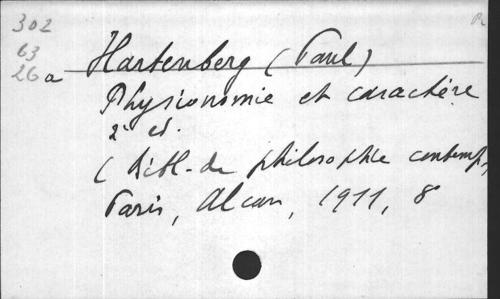 302
63
26a
Hartenberg (Paul)
Physionomie et caractère
2e éd.
(Bibl. de philosophie contemp.,
Paris, Alcan, 1911, 8°